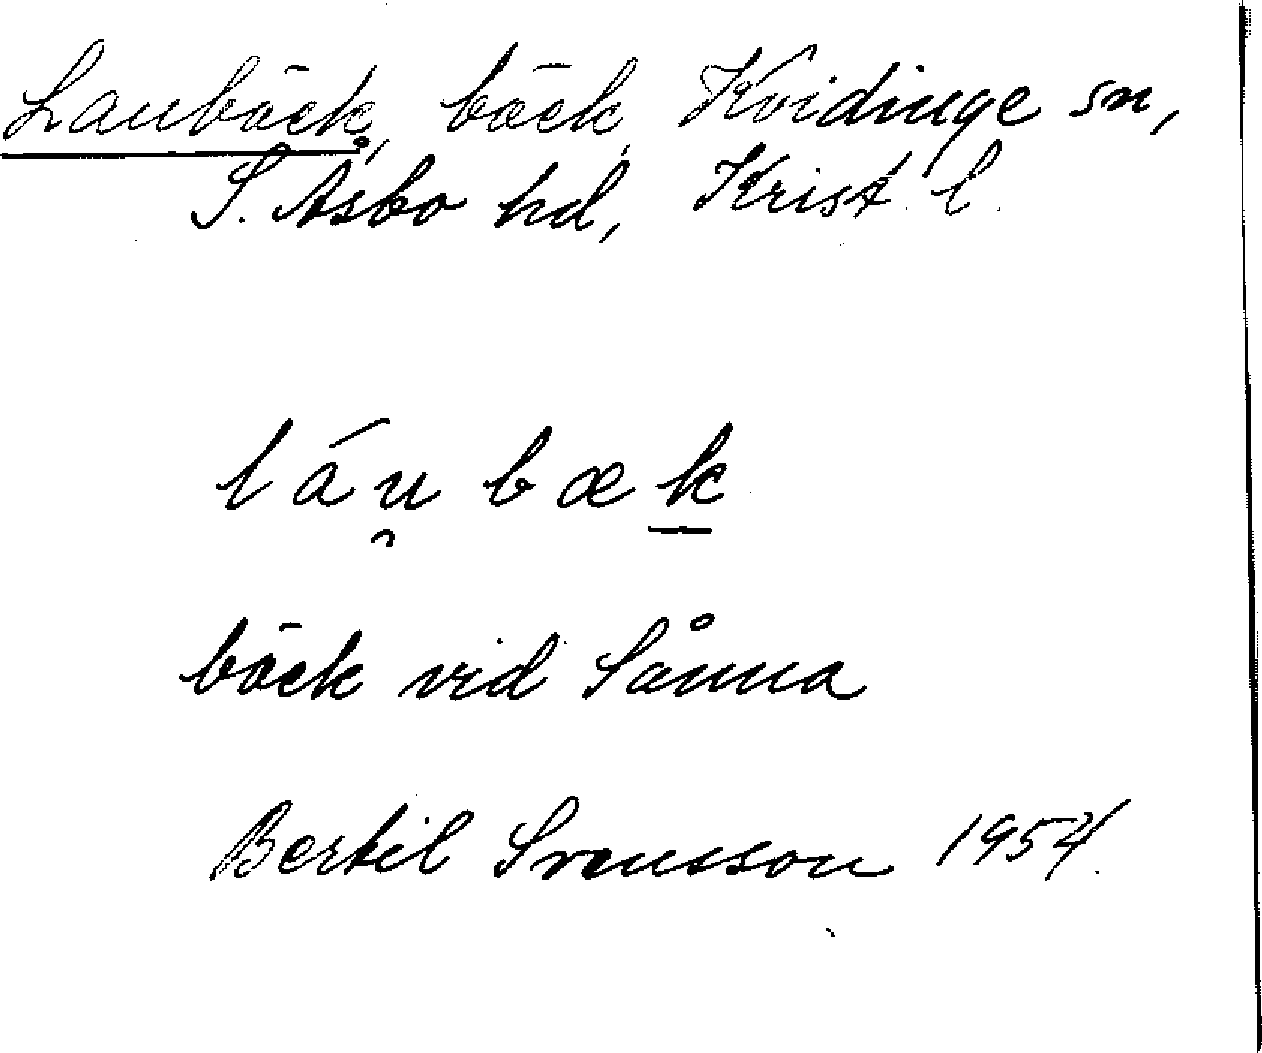 Laubäck, bäck, Kvidinge sn,
S. Åsbo hd, Krist. l.
láu̯bæk
bäck vid Sånna
Bertil Svensson 1954.